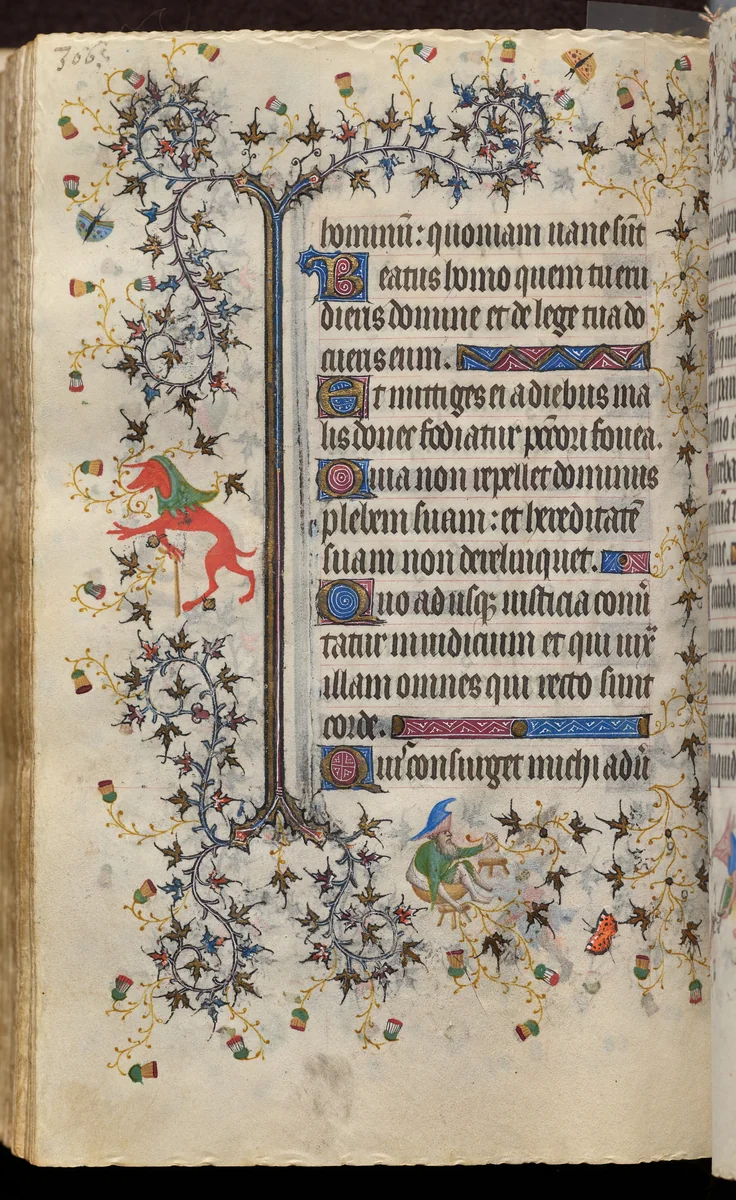 306.
hominū: quoniam uane sūt
Beatus homo quem tu eru
dieris domine et de lege tua do
cueris eum.
Et mittiges ei a diebus ma
lis donec fodiatur pccōri fouea.
Quia non repellet dominus
plebem suam: et hereditatē
suam non derelinquet.
Quo adusqʒ iusticia conū
tatur in iudicium et qui iux̄
illam omnes qui recto sunt
corde.
Quis consurget michi adū